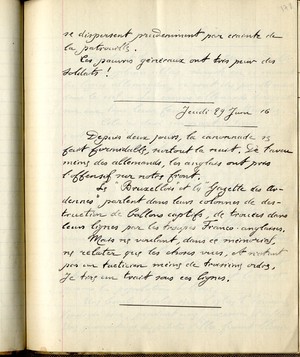 se dispersent prudemment par crainte de
la patrouille.
Ces pauvres généraux ont très peur des
soldats !
Jeudi 29 Juin 16
Depuis deux jours, la canonnade se
fait formidable, surtout la nuit. De
même des allemands, les anglais ont pris
l'offensif sur notre front.
Le "Bruxellois" et la "Gazette des Ar-
dennes" parlent dans leurs colonnes de des-
truction de ballons captifs, de trouées dans
leurs lignes par les troupes Franco-anglaises.
Mais ne voulant, dans ce mémorial,
ne relater que les choses vues, et n'étant
pas un tacticien même de troisième ordre,
je tire un trait sous ces lignes.